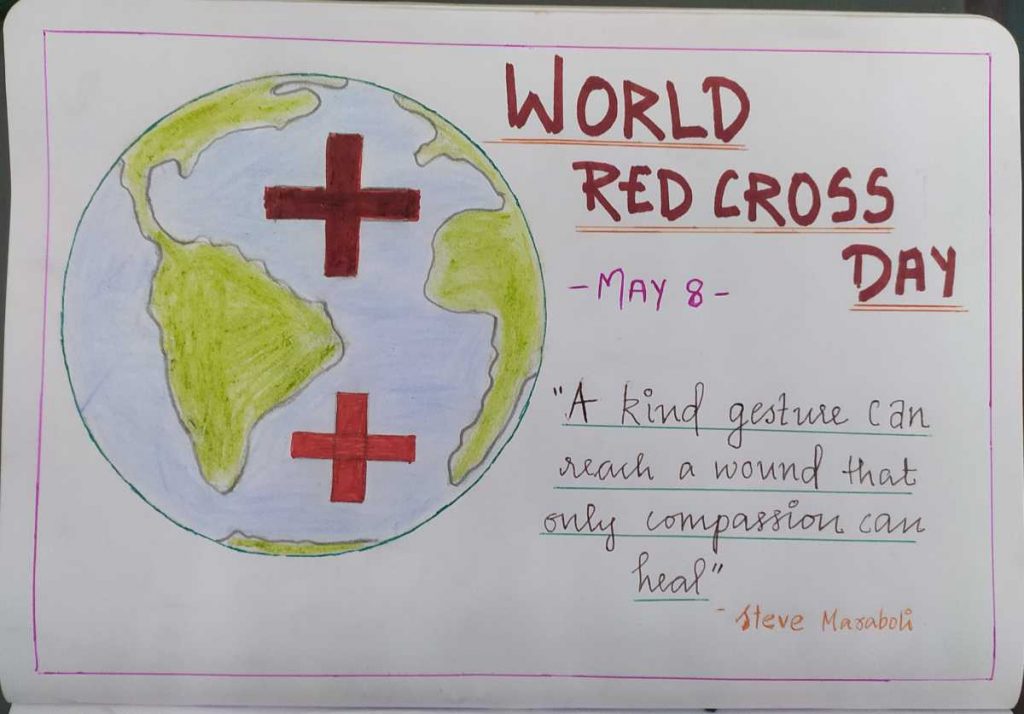 WORLD
RED CROSS
DAY
-MAY 8-
"A kind gesture can
reach a wound that
only compassion can
heal"
- Steve Maraboli